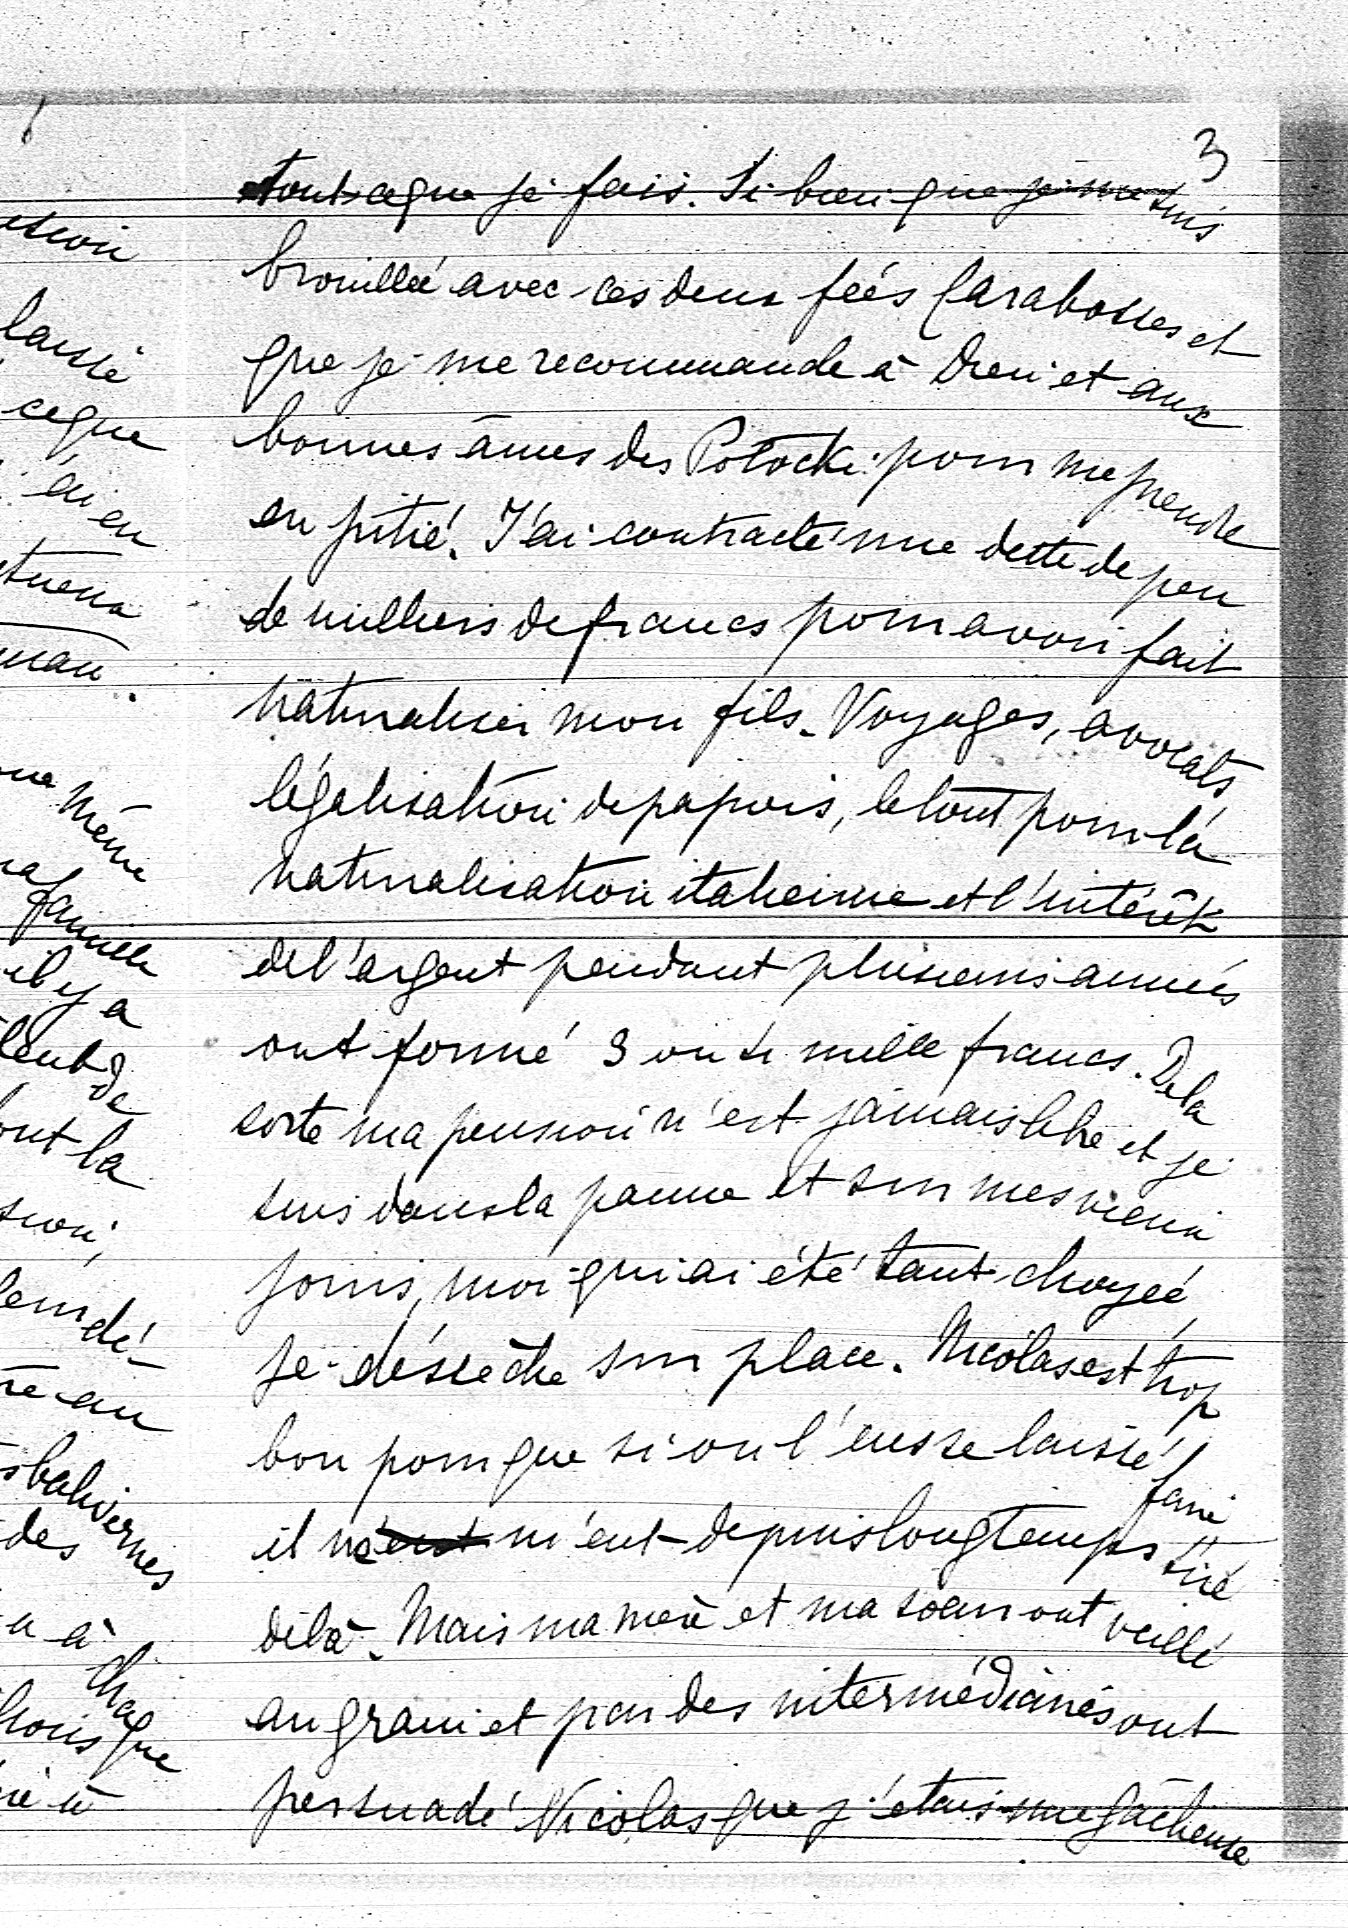 3
tout ce que je fais. Si bien que je me suis
brouillée avec ces deux fées Carabosses et
que je me recommande à Dieu et aux
bonnes âmes des Potocki pour me prendre
en pitié. J'ai contracté une dette de peu
de milliers de francs pour avoir fait
naturaliser mon fils. Voyages, avocats,
légalisation de papiers, le tout pour la
naturalisation italienne et l'intérêt
de l'argent pendant plusieurs années
ont formé 3 ou 4 mille francs. De la
sorte ma pension n'est jamais libre et je
suis dans la panne et sur mes vieux
jours, moi qui ai été tant choyée,
je déssèche sur place. Nicolas est trop
bon pour que si on l'eusse laissé faire
il m'eut depuis longtemps tiré
de là. Mais ma mère et ma sœur ont veillé
au grain et par des intermédiaires ont
persuadé Nicolas que j'étais une gâcheuse
laissé
ce que
ai eu
même
famille
il y a
de
ont la
dé-
au
balivernes
des
à
chaque